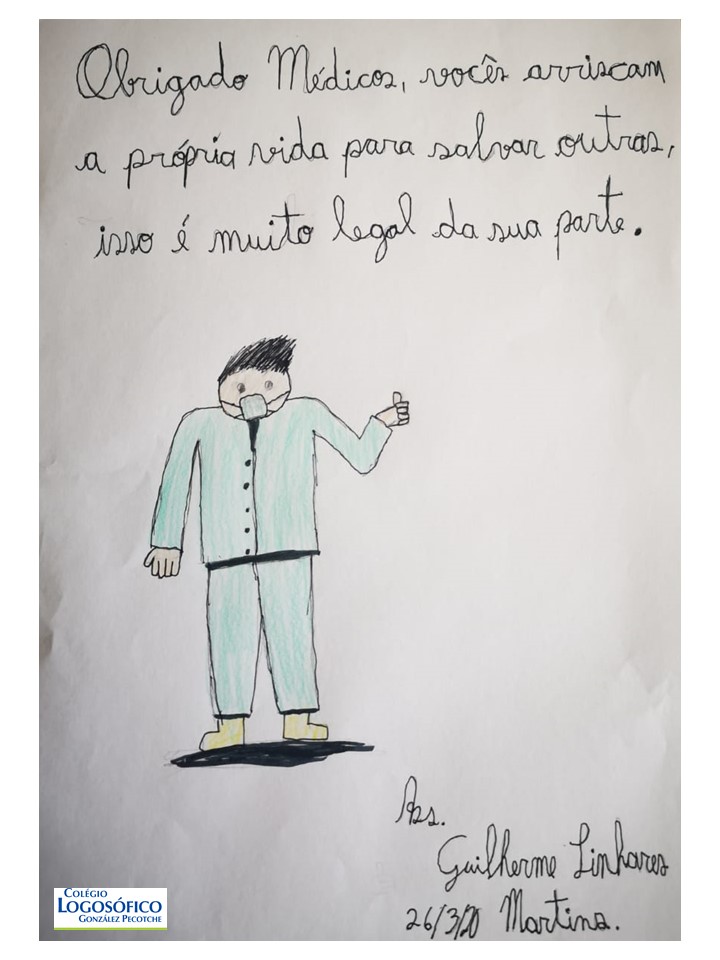 Obrigado Médicos, vocês arriscam
a própria vida para salvar outras,
isso é muito legal da sua parte.
Ass.
Guilherme Linhares
26/3/20 Martins.
COLÉGIO
LOGOSÓFICO
GONZÁLEZ PECOTCHE